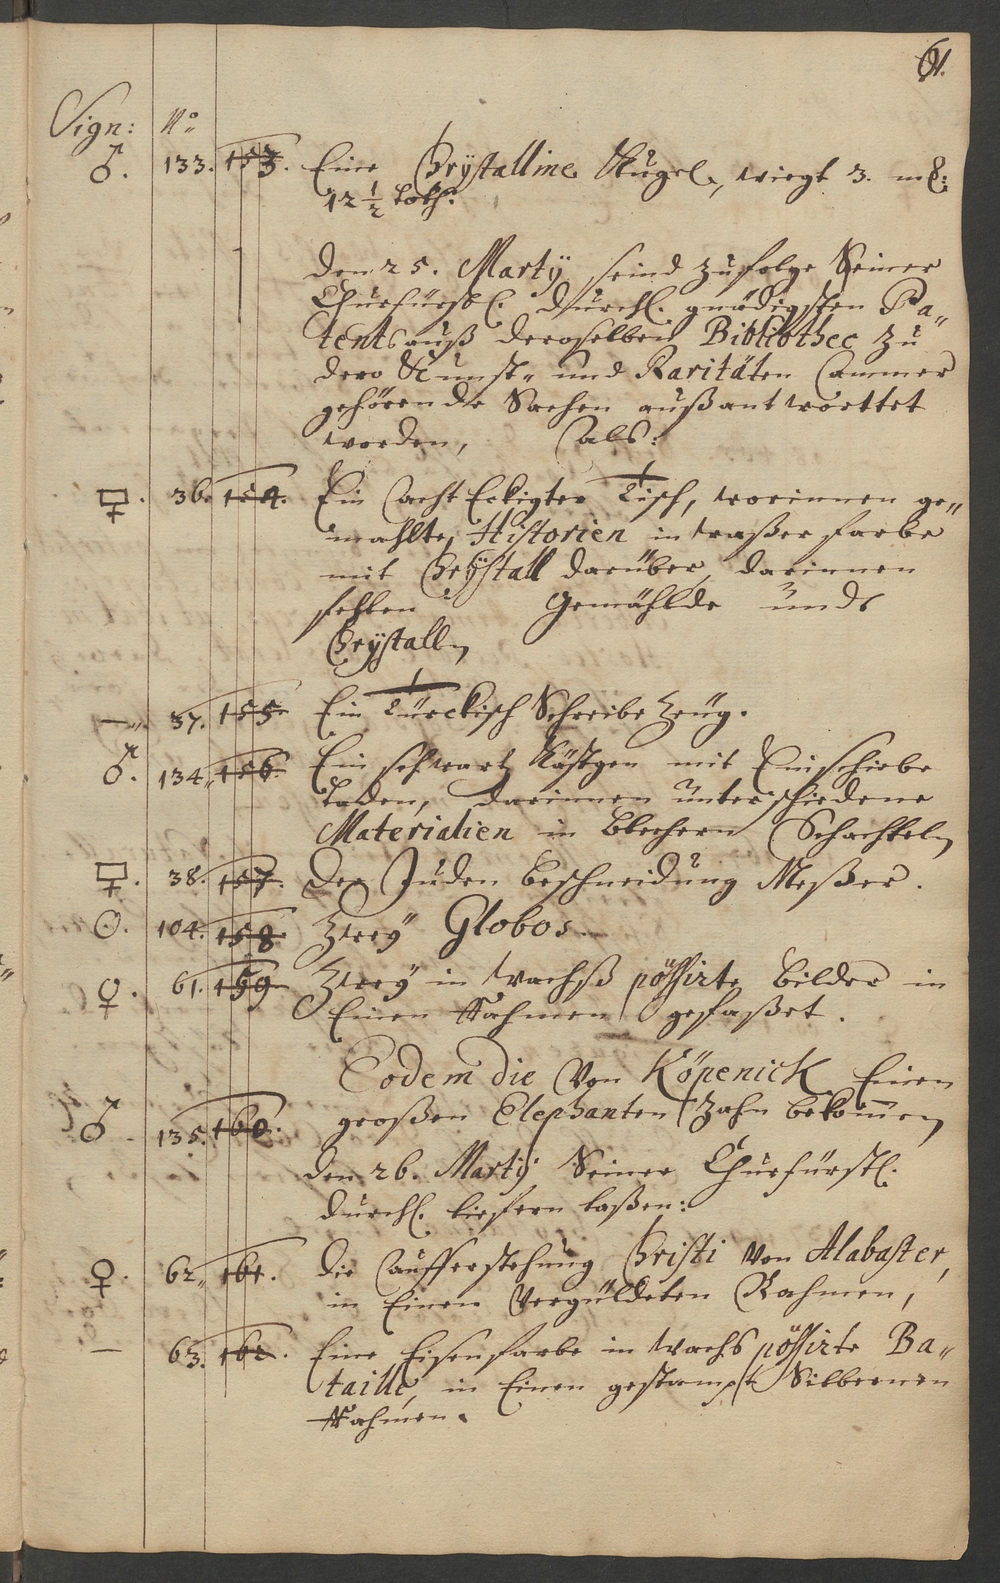 61.
Sign: No
♂. 133. 153. Eine Crÿstalline Kugel, wiegt 3. m͠:
12 1/2 Loth.
Den 25. Martÿ seind zufolge Seiner
Churfürstl. Durchl. gnädigsten Pa„
tents auß deroselben Bibliothec zu
dero Kunst„ und Raritäten Cammer
gehörende Sachen außantworttet
worden, als:
36. 154. Ein acht Eckigter Tisch, worinnen ge„
mahlte Historien in waßer farbe
mit Crÿstall darüber, darinnen
fehlen Gemählde unds
Crÿstallen
—„ 37. 155. Ein Türckisch Schreibe Zeug.
♂. 134. 156. Ein schwartz Kästgen mit Einschiebe
Laden, darinnen unterschiedene
Materialien in blechern Schachteln
38. 157. Der Juden beschneidung Meßer.
☉. 104. 158. Zweÿ Globos.
♀. 61. 159. Zweÿ in wachß pößirte bilder in
Einen Rahmen gefaßet.
Eodem die Von Köpenick Einen
♂. 135. 160. großen Elephanten Zahn bekom̄en
Den 26. Martÿ Seiner Churfürstl.
Durchl. liefern laßen:
♀. 62. 161. Die aufferstehung Christi von Alabaster,
in Einen Vergüldeten Rahmen,
— 63. 162. Eine Eisenfarbe in wachs pößirte Ba„
taille, in Einen gestampft Silbernen
Rahmen.